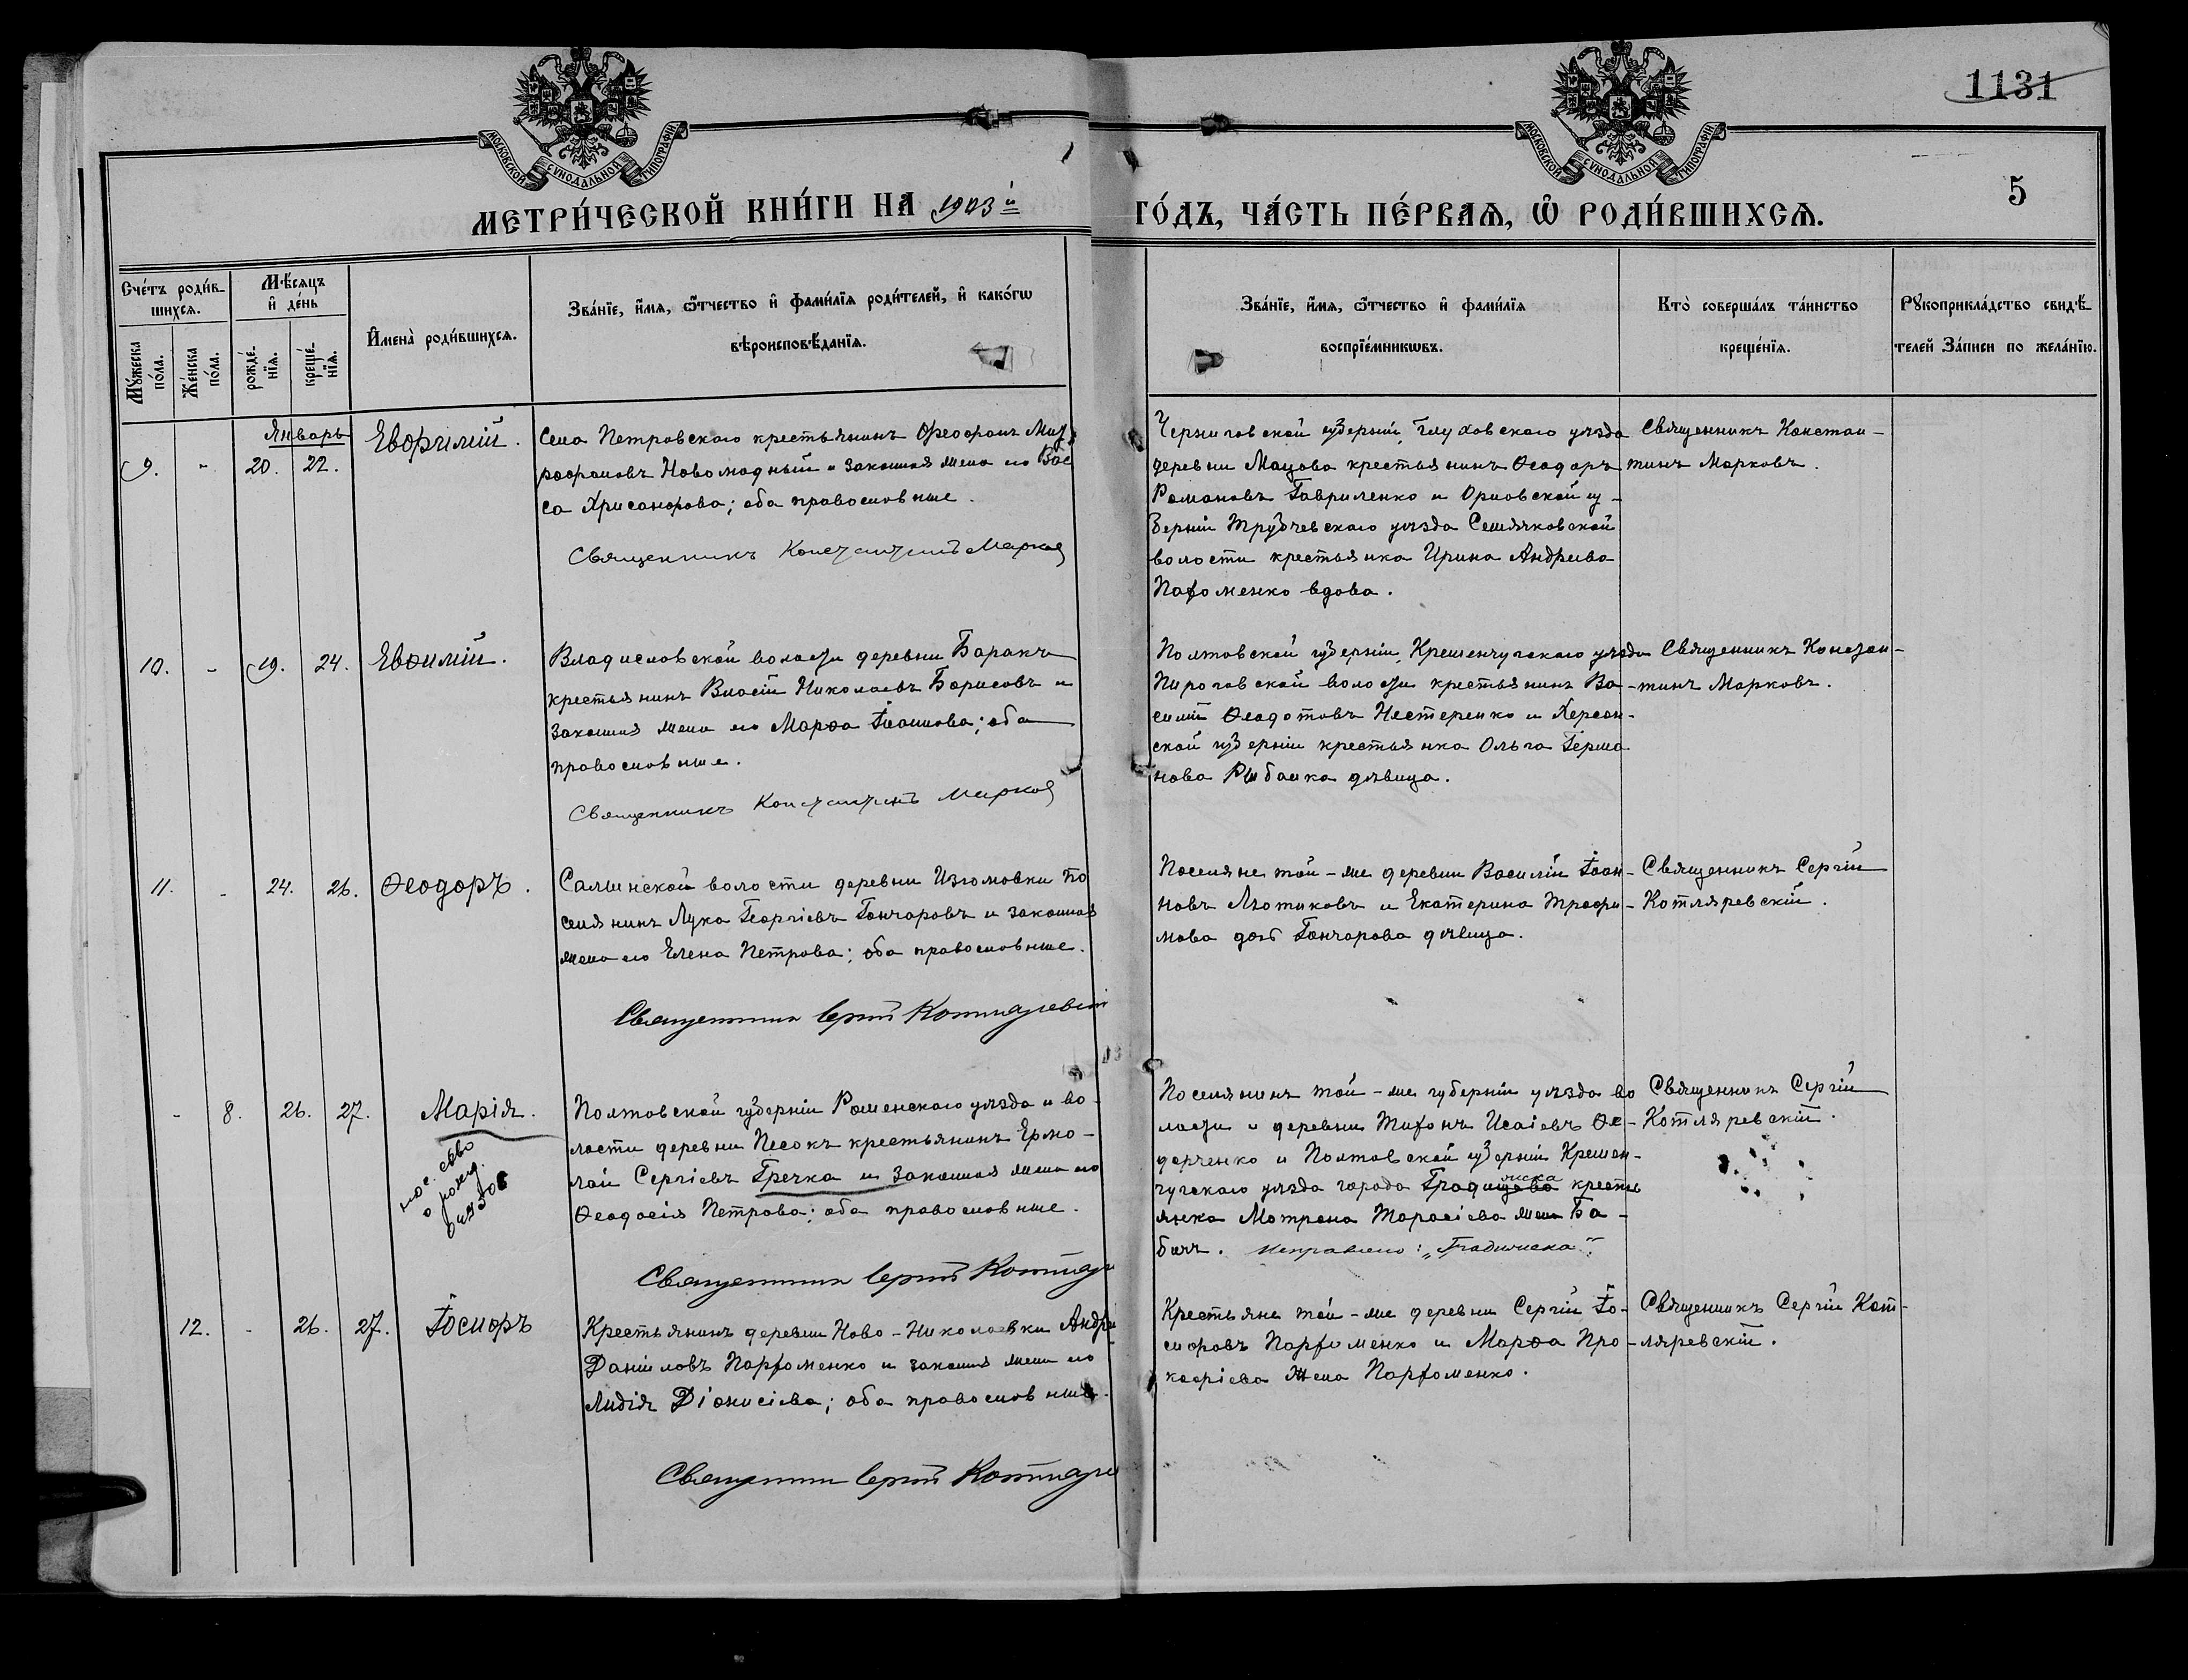 1131
МОСКОВСКОЙ СѴНОДАЛЬНОЙ ТИПОГРАФІИ
МОСКОВСКОЙ СѴНОДАЛЬНОЙ ТИПОГРАФІИ
5
МЕТРИ́ЧЕСКОЙ КНИ́ГИ НА 1903 й
ГО́ДЪ, ЧА́СТЬ ПЕ́РВАѦ, Ѽ РОДИ́ВШИХСѦ.
Сче́тъ роди́в-
шихсѧ.
Мꙋ́жеска по́ла.
Же́нска по́ла.
Мѣ́сѧцъ
и҆ де́нь
рожде́-нїѧ.
креще́-нїѧ.
И҆мена̀ роди́вшихсѧ.
Зва́нїе, и҆́мѧ, ѻ҆́тчество и҆ фами́лїѧ роди́телей, и҆ како́гѡ
вѣроисповѣ́данїѧ.
Зва́нїе, и҆́мѧ, ѻ҆́тчество и҆ фами́лїѧ
воспрїе́мникѡвъ.
Кто̀ соверша́лъ та́инство
креще́нїѧ.
Рꙋкоприкла́дство свидѣ́-
телей За́писи по жела́нїю.
Январь
9. - 20. 22. Евфимій.
Села Петровскаго крестьянинъ Ѳеофанъ Мит
рофановъ и законная жена его Вас
са Хрисанфова; оба православные.
Священникъ Константинъ Марков
Черниговской губерніи, Глуховскаго уѣзда
деревни Мацова крестьянинъ Ѳеодоръ
Романовъ Гавриленко и Орловской гу-
берніи Трубчевскаго уѣзда Семячковской
волости крестьянка Ирина Андреева
Пафоменко вдова.
Священникъ Констан-
тинъ Марковъ.
10. - 19. 24. Евѳимій.
Владиславской волости деревни Баракъ
крестьянинъ Власій Николаевъ Борисовъ и
законная жена его Марѳа Іоаннова; оба
православные.
Священникъ Константинъ Марков
Полтовской губерніи, Кременчугскаго уѣзда
Пироговской волости крестьянинъ Ва-
силій Ѳеодотовъ Нестеренко и Херсон-
ской губерніи крестьянка Ольга Герма
нова Рыбалка дѣвица.
Священникъ Констан-
тинъ Марковъ.
11. - 24. 26. Ѳеодоръ.
Салынской волости деревни Изюмовки По
селянинъ Лука Георгіевъ Гончаровъ и законная
жена его Елена Петрова; оба православные.
Священник Сергій Котляревскій
Поселяне той-же деревни Василій Іоан-
новъ Лютиковъ и Екатерина Трофи-
мова Гончарова дѣвица.
Священникъ Сергій
Котляревскій.
- 8. 26. 27. Марія.
Полтовской губерніи Роменскаго уѣзда и во-
лости деревни Песокъ крестьянинъ Ермо-
лай Сергіевъ Гречка и законная жена его
Ѳеодосія Петрова; оба православные.
Священник Сергій Котляр
Поселянинъ той-же губерніи уѣзда во
лости и деревни Тифонъ Исаіевъ Ѳе-
дорченко и Полтовской губерніи Кремен-
чугскаго уѣзда города Градищева жска кресть
янка Матрона Тарасіева жена Ба-
бичъ. Исправлено: „Градижска“.
Священникъ Сергій
Котляревскій.
12. - 26. 27. Іосифъ
Крестьянинъ деревни Ново-Николаевки Андре
Даніиловъ Парфоменко и законная жена его
Лидія Діонисіева; оба православные.
Священник Сергій Котляре
Крестьяне той-же деревни Сергій Іо-
сифовъ Парфоменко и Марѳа Про-
кофіева жена Парфоменко.
Священникъ Сергій Кот-
ляревскій.